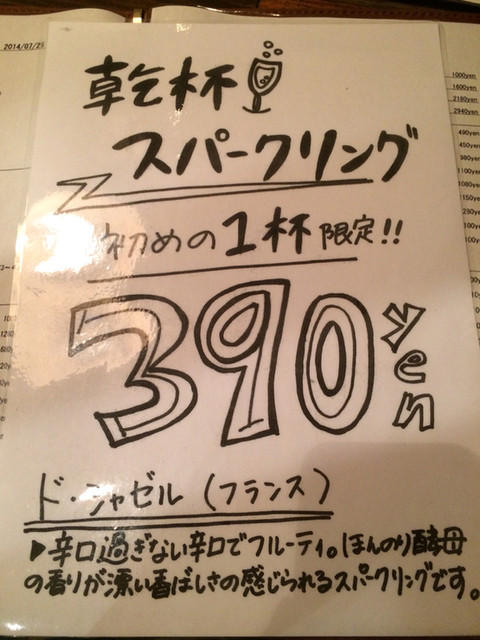 2014/07/25
乾杯
スパークリング
初めの1杯限定!!
390yen
ド・シャゼル(フランス)
▶辛口過ぎない辛口でフルーティ。ほんのり酵母
の香りが漂い香ばしさの感じられるスパークリングです。
1000yen
1600yen
2180yen
2940yen
490yen
450yen
980yen